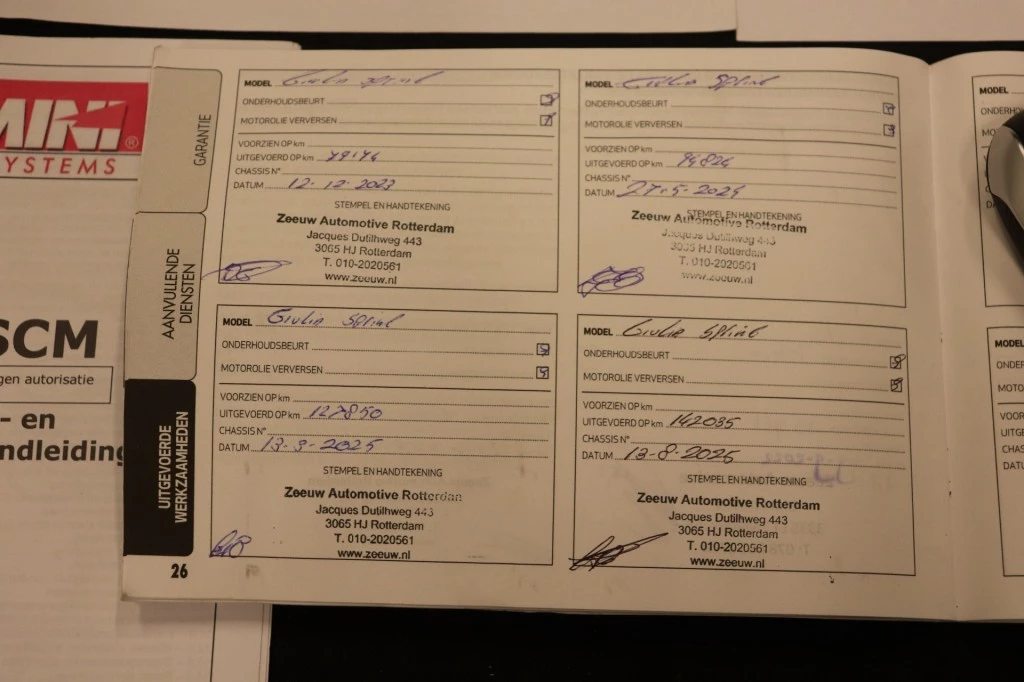 MINI®
SYSTEMS
SCM
gen autorisatie
- en
ndleiding
GARANTIE
AANVULLENDE
DIENSTEN
UITGEVOERDE
WERKZAAMHEDEN
26
MODEL Giulia Sprint
ONDERHOUDSBEURT
MOTOROLIE VERVERSEN
VOORZIEN OP km
UITGEVOERD OP km
CHASSIS N°
DATUM 12-12-2023
STEMPEL EN HANDTEKENING
Zeeuw Automotive Rotterdam
Jacques Dutilhweg 443
3065 HJ Rotterdam
T. 010-2020561
www.zeeuw.nl
MODEL Giulia Sprint
ONDERHOUDSBEURT
MOTOROLIE VERVERSEN
VOORZIEN OP km
UITGEVOERD OP km 94826
CHASSIS N°
DATUM 27-5-2024
STEMPEL EN HANDTEKENING
Zeeuw Automotive Rotterdam
Jacques Dutilhweg 443
3065 HJ Rotterdam
T. 010-2020561
www.zeeuw.nl
MODEL Giulia Sprint
ONDERHOUDSBEURT
MOTOROLIE VERVERSEN
VOORZIEN OP km
UITGEVOERD OP km 127850
CHASSIS N°
DATUM 13-3-2025
STEMPEL EN HANDTEKENING
Zeeuw Automotive Rotterdam
Jacques Dutilhweg 443
3065 HJ Rotterdam
T. 010-2020561
www.zeeuw.nl
MODEL Giulia Sprint
ONDERHOUDSBEURT
MOTOROLIE VERVERSEN
VOORZIEN OP km
UITGEVOERD OP km 142035
CHASSIS N°
DATUM 13-8-2025
STEMPEL EN HANDTEKENING
Zeeuw Automotive Rotterdam
Jacques Dutilhweg 443
3065 HJ Rotterdam
T. 010-2020561
www.zeeuw.nl
MODEL
ONDERH
MO
VO
UI
CH
DA
MODEL
ONDER
MOTO
VOOR
UITG
CHAS
DATU